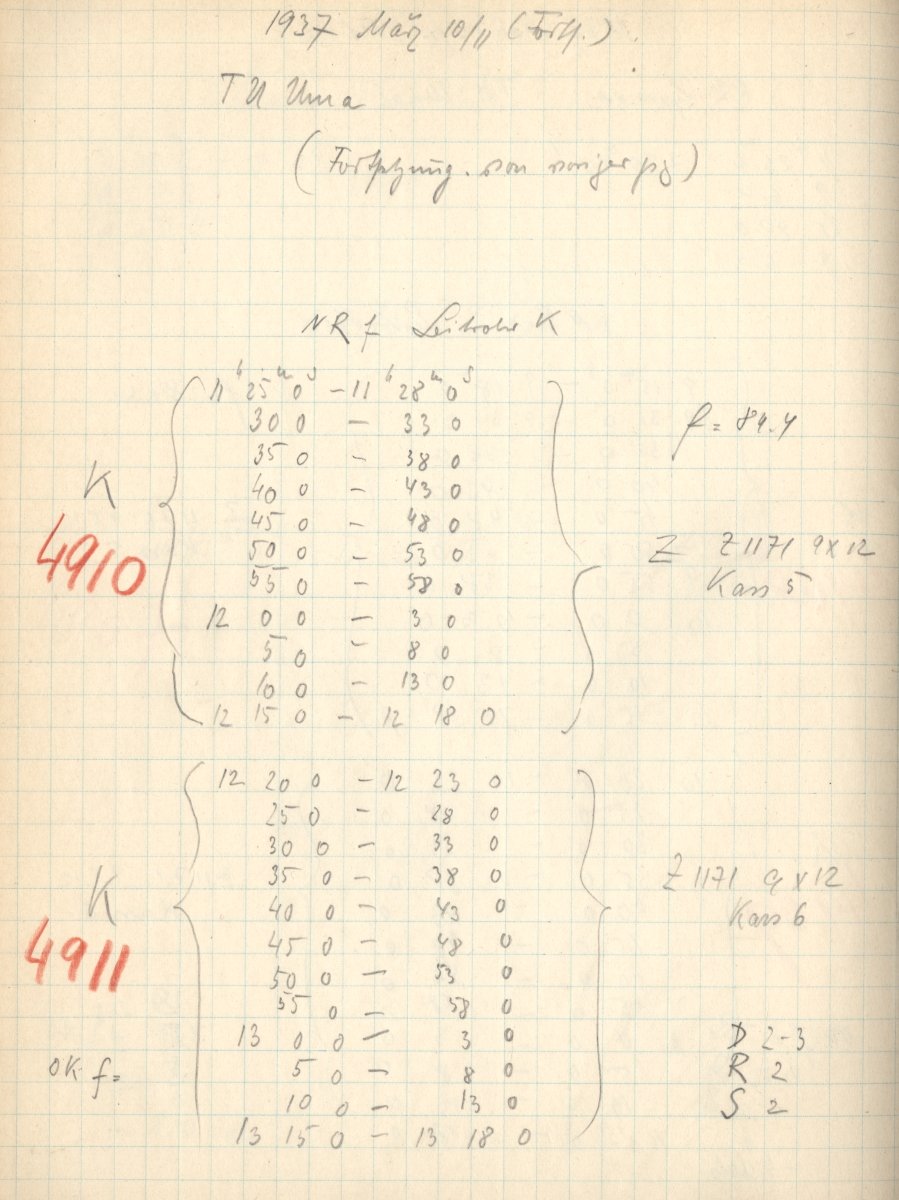 1937 März 10/11 (Forts.)
TU Uma
(Fortsetzung von voriger pg)
NR f Leitrohr K
11h 25m 0s – 11h 28m 0s
30 0 – 33 0
f = 84.4
35 0 – 38 0
K
40 0 – 43 0
45 0 – 48 0
4910
50 0 – 53 0
Z Z1171 9x12
55 0 – 58 0
Kass 5
12 0 0 – 3 0
5 0 – 8 0
10 0 – 13 0
12 15 0 – 12 18 0
12 20 0 – 12 23 0
25 0 – 28 0
30 0 – 33 0
35 0 – 38 0
Z1171 9x12
K
40 0 – 43 0
Kass 6
4911
45 0 – 48 0
50 0 – 53 0
55 0 – 58 0
13 0 0 – 3 0
D 2-3
OK f=
5 0 – 8 0
R 2
10 0 – 13 0
S 2
13 15 0 – 13 18 0